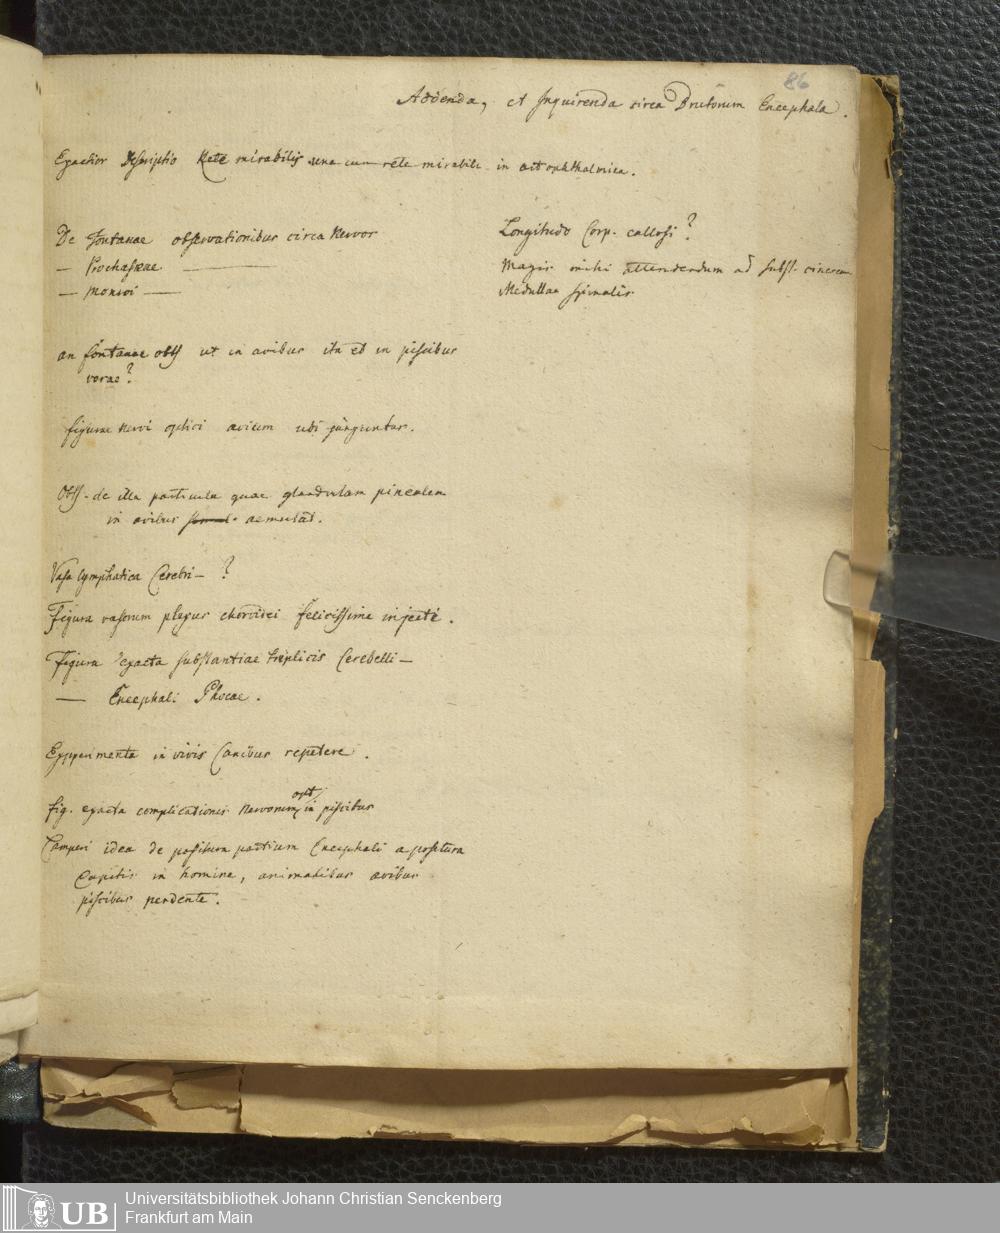 86
Addenda, et Inquirenda circa Brutorum Encephala.
Exactior Descriptio Rete mirabilis una cum rete mirabili in art ophthalmica.
De Fontanae observationibus circa Nervos
— Prochaskae —
— Monroi —
Longitudo Corp. callosi?
Magis mihi attendendum ad subst. cineream
Medullae spinalis
an fontanae obss ut in avibus ita et in piscibus
verae?
figurae Nervi optici avium ubi junguntur.
Obss. de illa particula quae glandulam pinealem
in avibus aemulat.
Vasa lymphatica Cerebri — ?
Figura vasorum plexus choroidei felicissime injecti.
Figura exacta substantiae triplicis Cerebelli —
— Encephali Phocae.
Experimenta in vivis Canibus repetere.
fig. exacta complicationis Nervorum opt. in piscibus
Camperi idea de positura partium Encephali a positura
Capitis in homine, animalibus avibus
piscibus pendente.
UB
Universitätsbibliothek Johann Christian Senckenberg
Frankfurt am Main